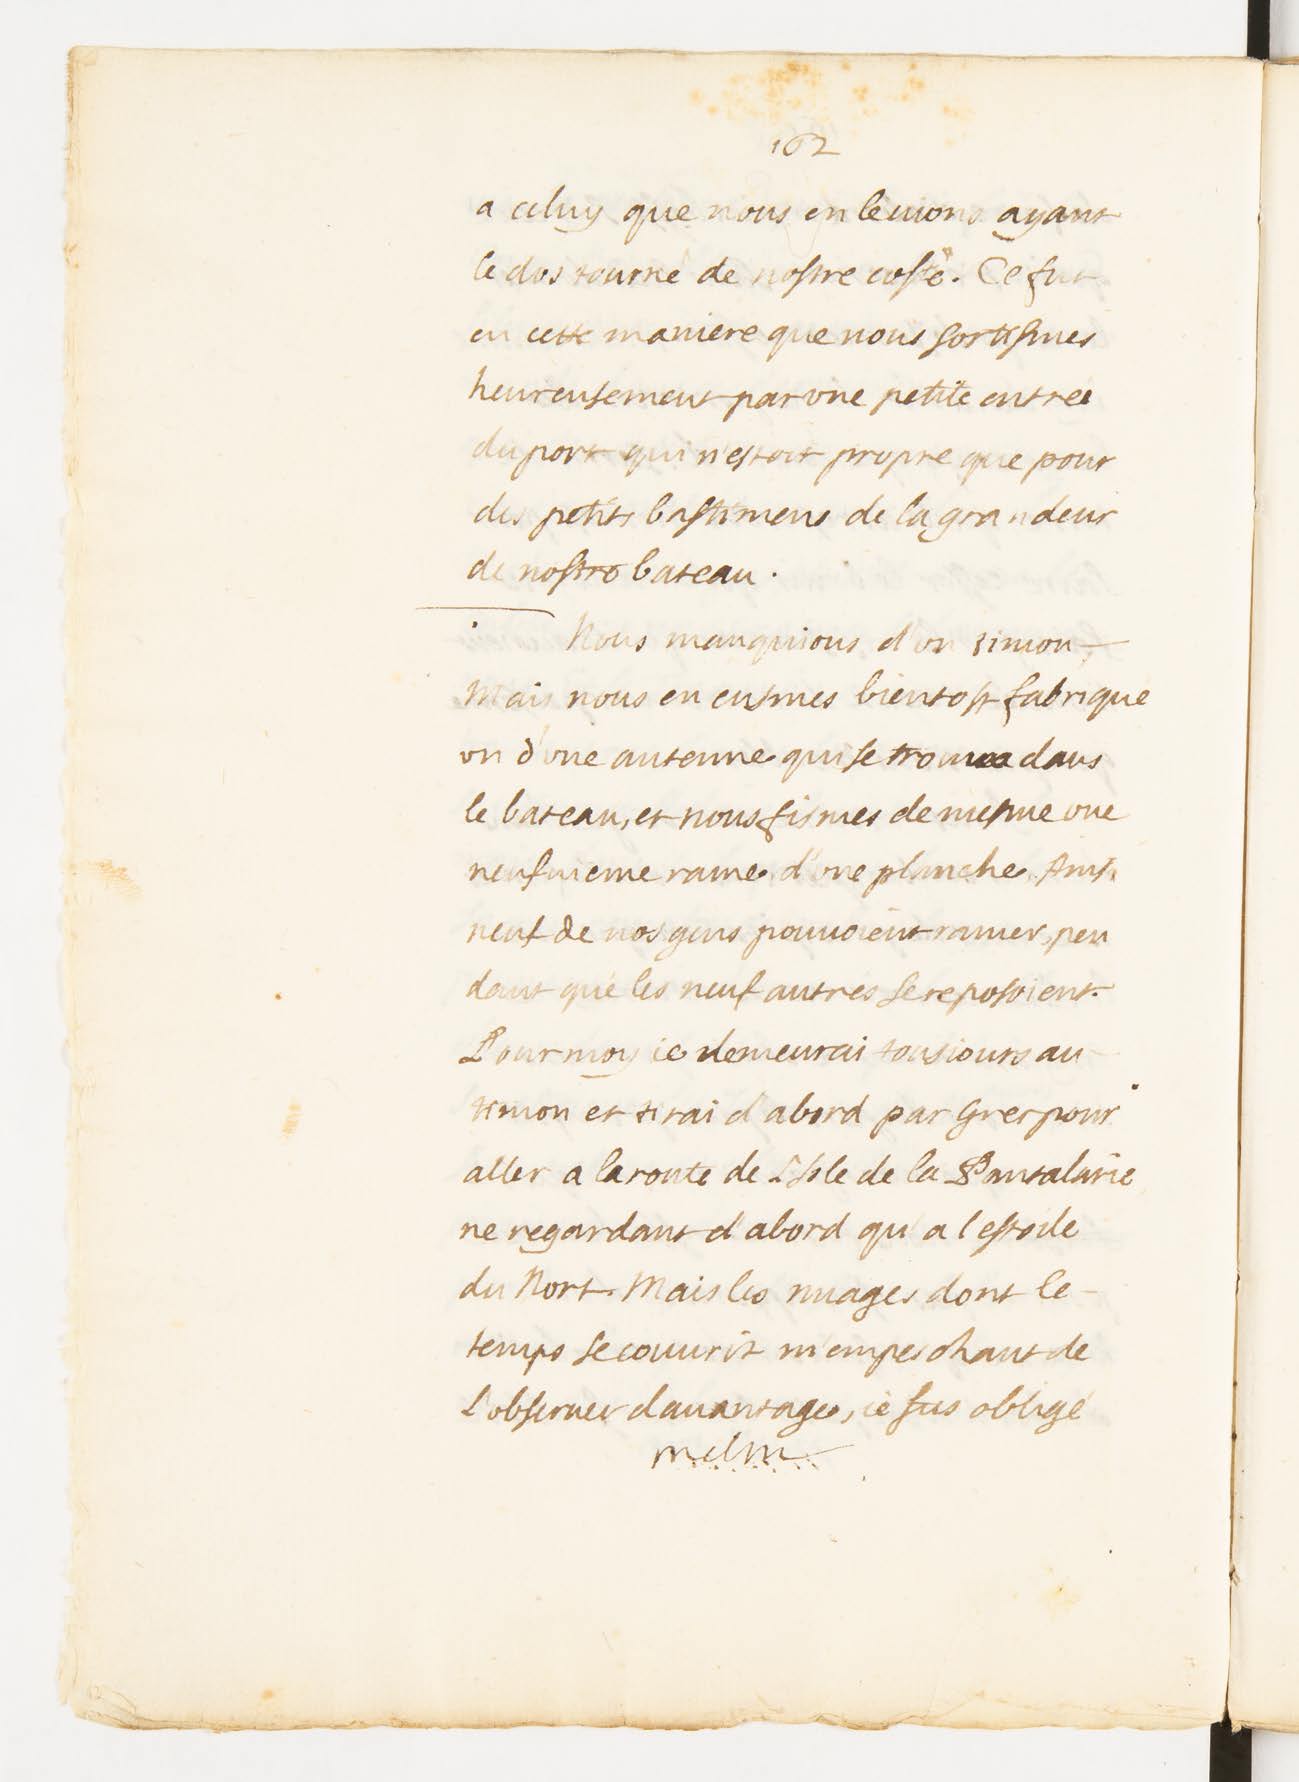 162
a celuy que nous en leuions ayant
le dos tourné de nostre costé. Ce fut
en cette maniere que nous sortismes
heureusement par vne petite entrée
du port qui n'estoit propre que pour
des petits bastimens de la grandeur
de nostre bateau.
Nous manquions d'vn timon
Mais nous en eusmes bientost fabrique
vn d'vne antenne qui se trouua dans
le bateau, et nous fismes de mesme vne
neufuieme rame d'vne planche. Ainsi
neuf de nos gens pouuoient ramer, pen
dant que les neuf autres se reposoient.
Pour moy ie demeurai tousiours au
timon et tirai d'abord par Grec pour
aller a la route de L'Isle de la Pantalarie
ne regardant d'abord qu'a l'estoile
du Nort. Mais les nuages dont le
temps se couurit m'empeschant de
L'obseruer dauantage, ie fus obligé